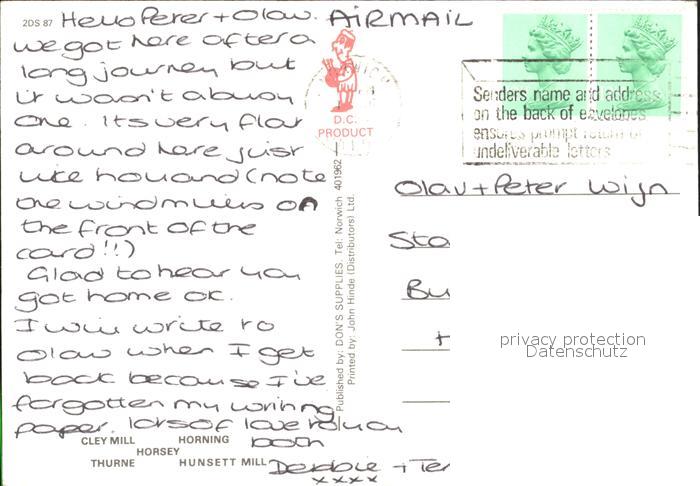 2DS 87 Hello Peter + Olav. AIRMAIL
we got here after a
long journey but
it wasn't a busy
one. Its very flat
around here just
like holland (note
the windmills on
the front of the
card!!)
Glad to hear you
got home ok.
I will write to
Olav when I get
back because I've
forgotten my writing
paper. lots of love to you
both
Debbie + Ter
xxxx
CLEY MILL HORNING
HORSEY
THURNE HUNSETT MILL
D.C.
PRODUCT
Published by: DON'S SUPPLIES. Tel: Norwich 401962
Printed by: John Hinde (Distributors) Ltd.
Senders name and address
on the back of envelopes
ensures prompt return of
undeliverable letters
Olav + Peter Wijn
Sta
Bu
H
privacy protection
Datenschutz